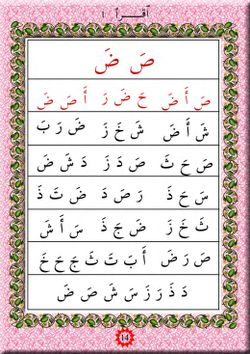 اقرأ ١
صَ ضَ
صَ أَ ضَ حَ ضَ رَ أَ صَ ضَ
شَ أَ ضَ شَ خَ زَ ضَ رَ بَ
صَ حَ ثَ صَ دَ زَ دَ شَ ضَ
سَ حَ ذَ رَ صَ دَ ضَ تَ ذَ
ثَ خَ زَ ضَ جَ ذَ سَ أَ شَ
صَ رَ ضَ أَ بَ تَ ثَ جَ حَ خَ
دَ ذَ رَ زَ سَ شَ صَ ضَ
14